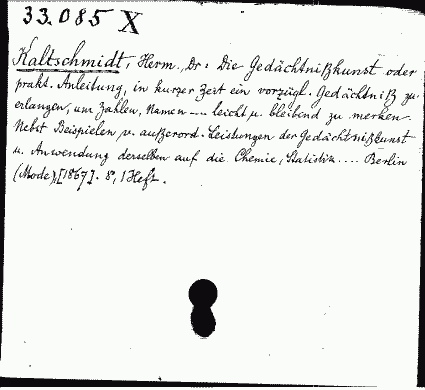 33.085 X
Kaltschmidt, Herm., Dr: Die Gedächtnißkunst oder
prakt. Anleitung, in kurzer Zeit ein vorzügl. Gedächtniß zu
erlangen, um Zahlen, Namen .... leicht u. bleibend zu merken.
Nebst Beispielen v. außerord. Leistungen der Gedächtnißkunst
u. Anwendung derselben auf die Chemie, Statistik .... Berlin
(Mode), [1867]. 8°, 1 Heft.